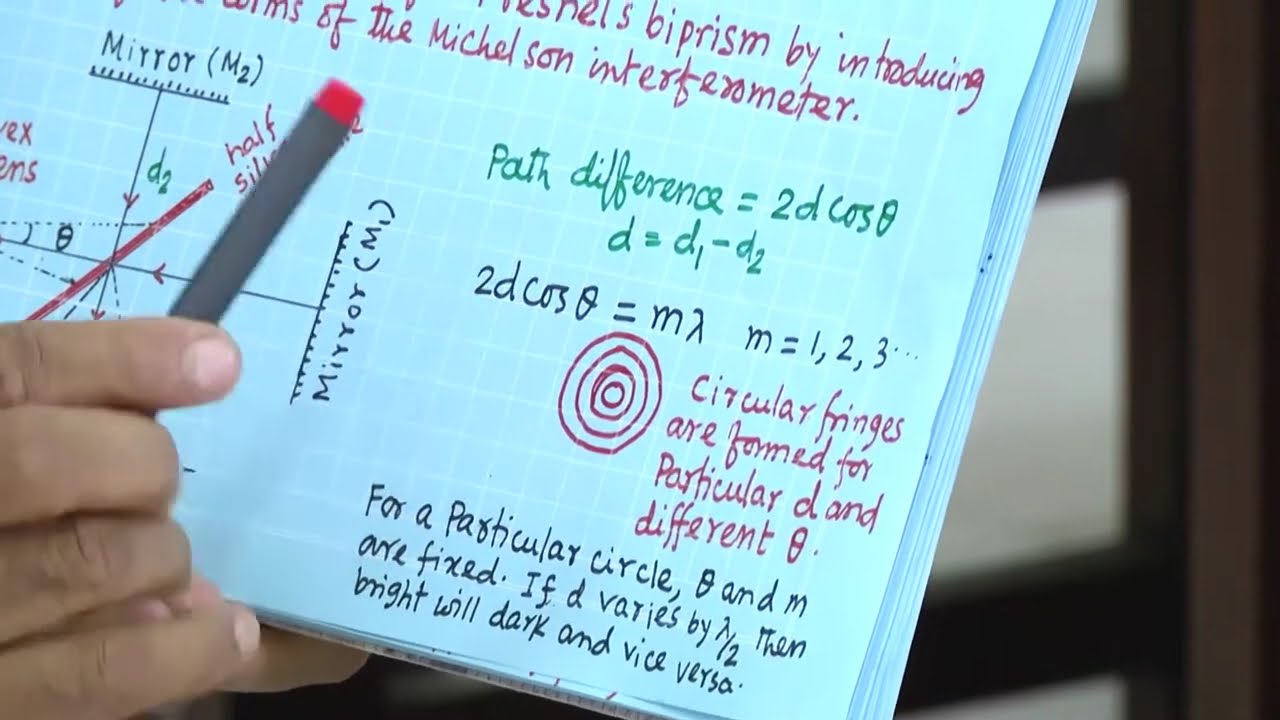 Fresnel's biprism by introducing
of the Michelson interferometer.
Mirror (M₂)
half
d₂
θ
Mirror (M₁)
Path difference = 2d cosθ
d = d₁ - d₂
2d cosθ = mλ m = 1, 2, 3...
Circular fringes
are formed for
Particular d and
different θ.
For a Particular circle, θ and m
are fixed. If d varies by λ/2 then
bright will dark and vice versa.